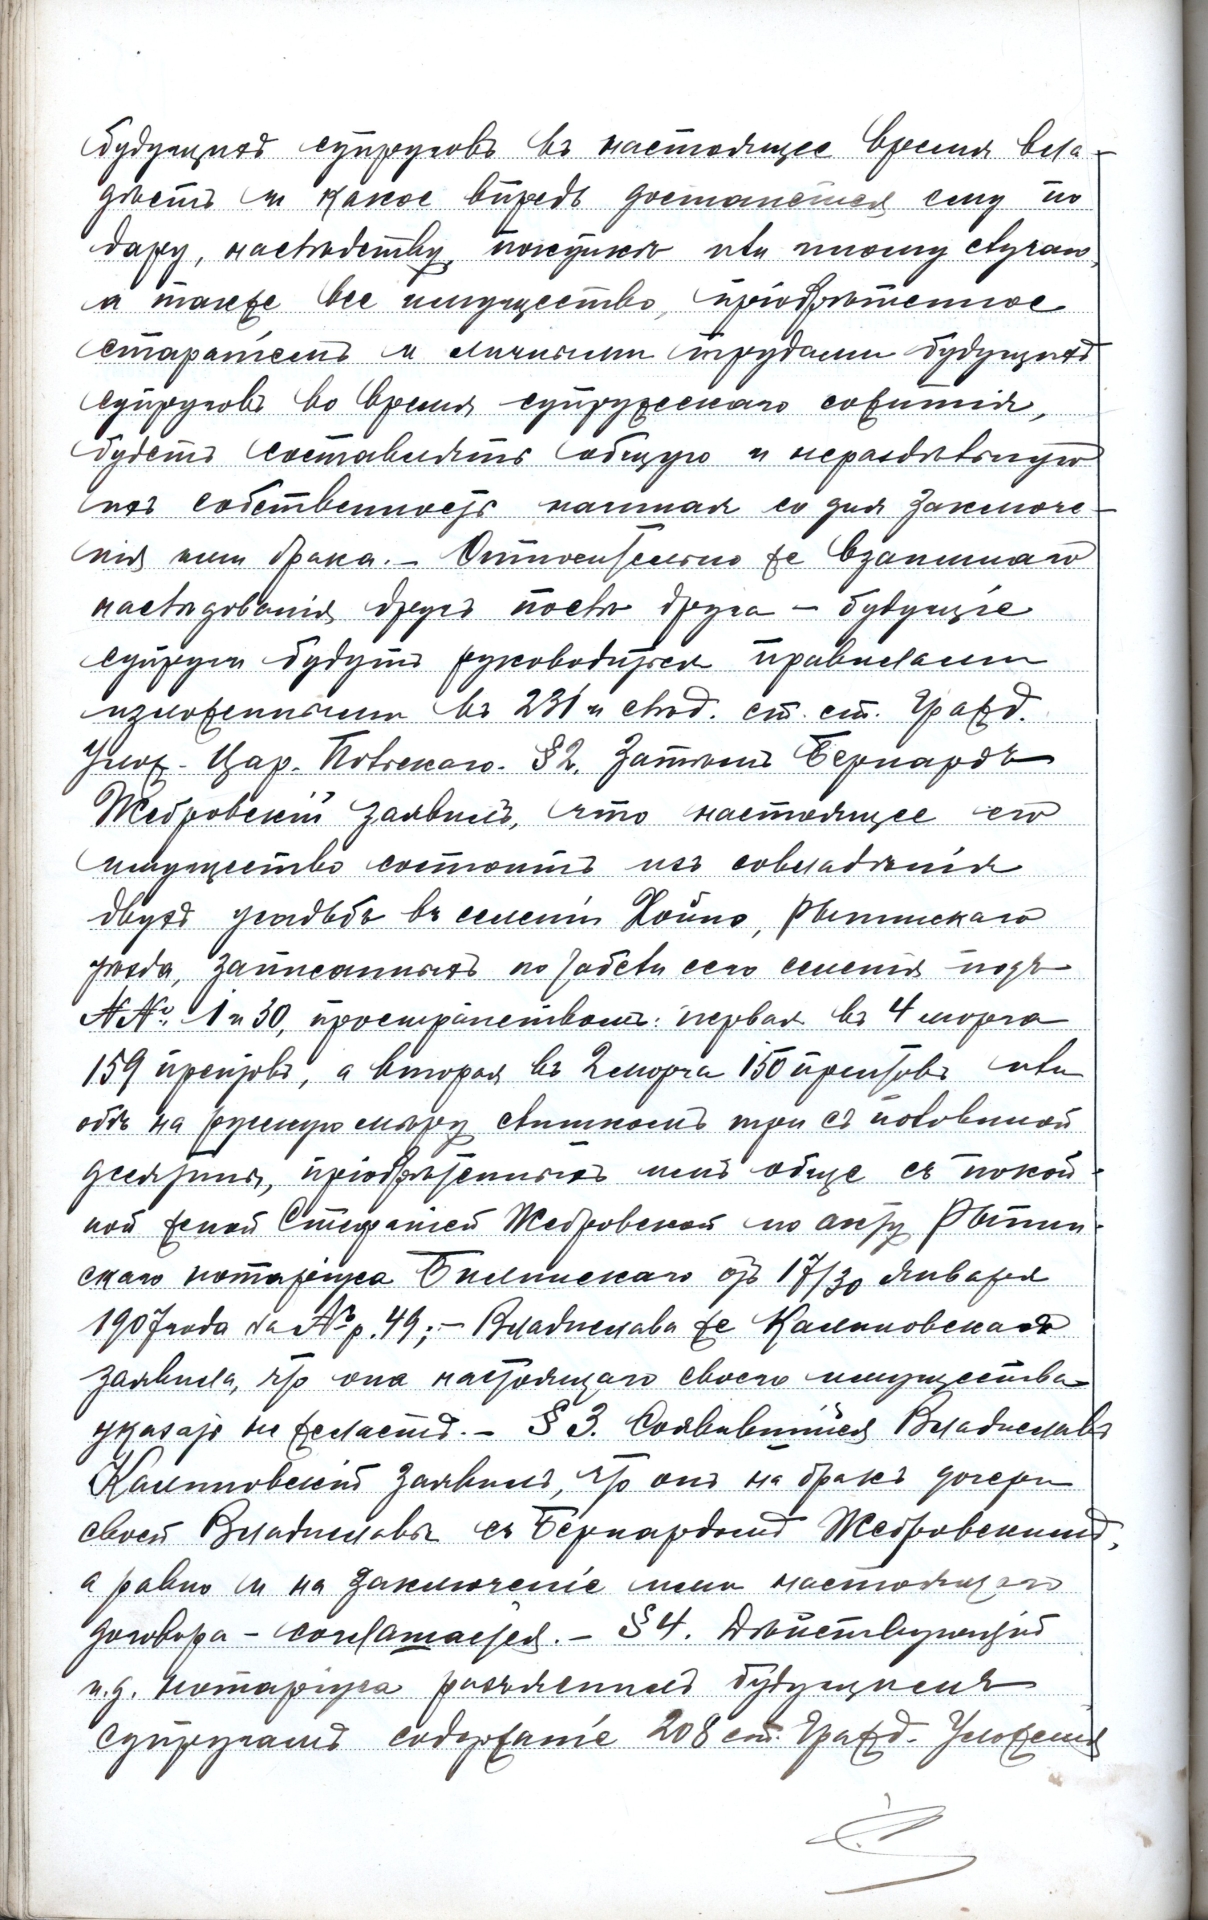 будущихъ супруговъ въ настоящее время вла-
дѣетъ и какое впредь достанется ему по
дару, наслѣдству, покупкѣ или иному случаю,
а также все имущество, пріобрѣтенное
стараніемъ и личными трудами будущихъ
супруговъ во время супружескаго сожитія,
будетъ составлять общую и нераздѣльную
ихъ собственность начиная со дня заключе-
нія ими брака. – Относительно же взаимнаго
наслѣдованія другъ послѣ друга – будущіе
супруги будутъ руководиться правилами
изложенными въ 231 и слѣд. ст. ст. Гражд.
Улож. Цар. Польскаго. § 2. Затѣмъ Бернардъ
Жебровскій заявилъ, что настоящее его
имущество состоитъ изъ совладѣнія
двухъ усадьбъ въ селеніи Хойно, Рыпинскаго
уѣзда, записанныхъ по табели сего селенія подъ
№№ 1 и 30, пространствомъ: первая въ 4 морга
159 прентовъ, а вторая въ 2 морга 150 прентовъ или
обѣ на русскую мѣру слишкомъ три съ половиной
десятины, пріобрѣтенныхъ имъ обще съ покой-
ной женой Стефаніей Жебровской по акту Рыпин-
скаго нотаріуса Билинскаго отъ 17/30 января
1907 года за № р. 49; – Владислава же Калиновская
заявила, что она настоящаго своего имущества
указать не желаетъ. – § 3. Соявившійся Владиславъ
Калиновскій заявилъ, что онъ на бракъ дочери
своей Владиславы съ Бернардомъ Жебровскимъ,
а равно и на заключеніе ими настоящаго
договора – соглашается. – § 4. Дѣйствующій
и. д. нотаріуса разъяснилъ будущимъ
супругамъ содержаніе 208 ст. Гражд. Уложенія